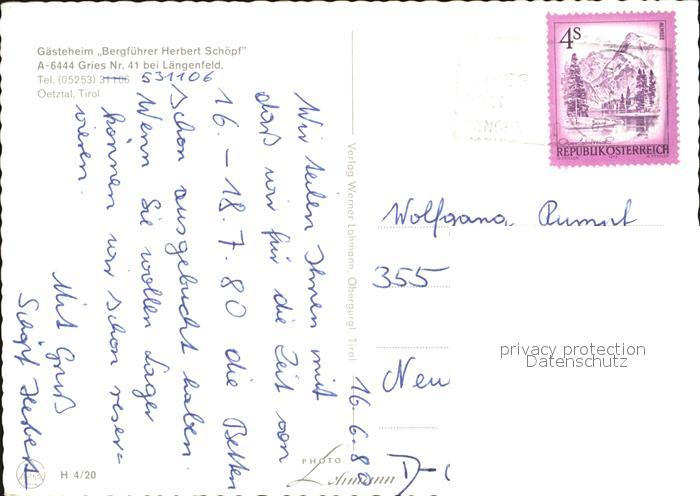 Gästeheim „Bergführer Herbert Schöpf"
A-6444 Gries Nr. 41 bei Längenfeld,
Tel. (05253) 31106 531106
Oetztal, Tirol
Wir teilen Ihnen mit
daß wir für die Zeit von
16. – 18.7.80 die Betten
schon ausgebucht haben.
Wenn Sie wollen Lager
können wir schon reser=
vieren.
Mit Gruß
Schöpf Herbert
16.6.80
H 4/20
Verlag Werner Lohmann, Obergurgl Tirol
PHOTO
Lohmann
4s
ALMSEE
REPUBLIK ÖSTERREICH
Wolfgang
355
Neu
D-
privacy protection
Datenschutz